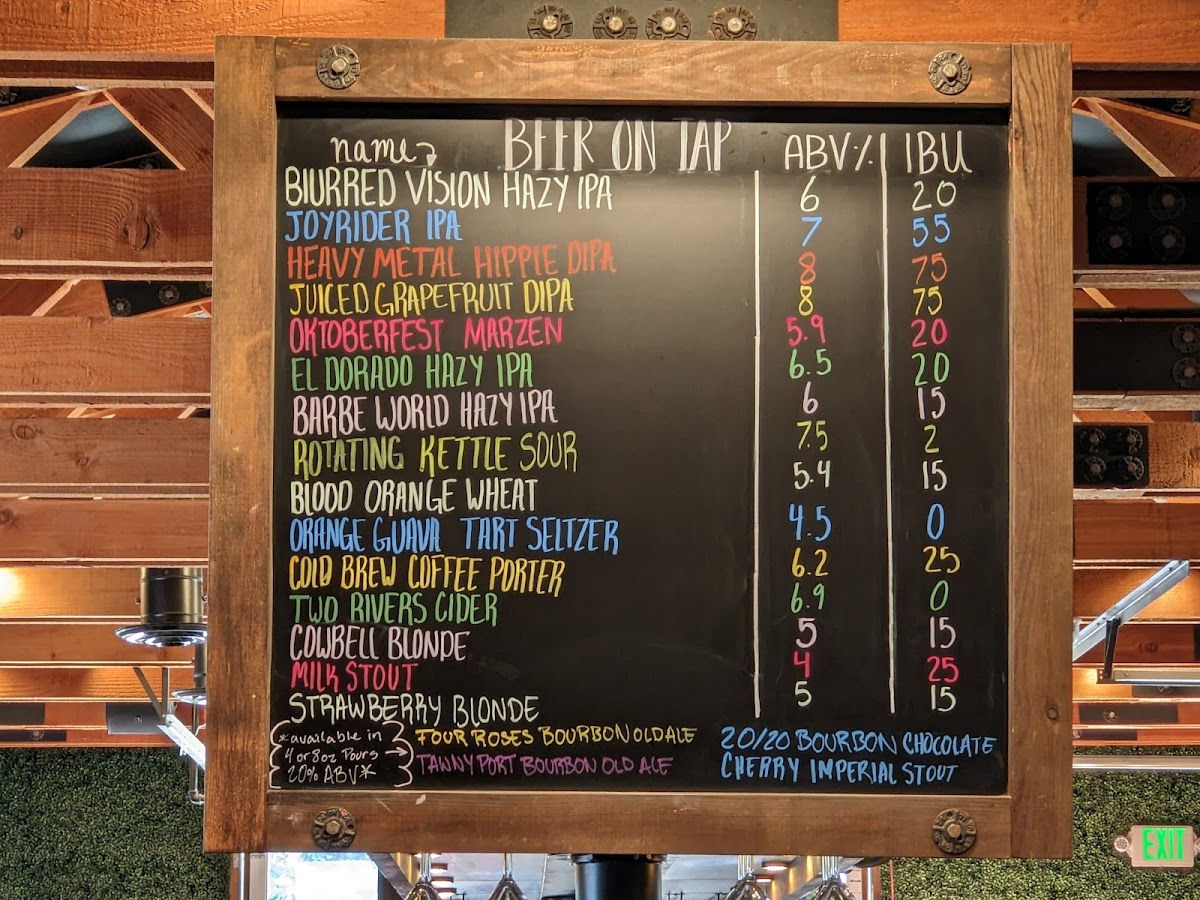 name BEER ON TAP ABV% IBU
BLURRED VISION HAZY IPA 6 20
JOYRIDER IPA 7 55
HEAVY METAL HIPPIE DIPA 8 75
JUICED GRAPEFRUIT DIPA 8 75
OKTOBERFEST MARZEN 5.9 20
EL DORADO HAZY IPA 6.5 20
BARBE WORLD HAZY IPA 6 15
ROTATING KETTLE SOUR 7.5 2
BLOOD ORANGE WHEAT 5.4 15
ORANGE GUAVA TART SELTZER 4.5 0
COLD BREW COFFEE PORTER 6.2 25
TWO RIVERS CIDER 6.9 0
COWBELL BLONDE 5 15
MILK STOUT 4 25
STRAWBERRY BLONDE 5 15
*available in
4 or 8oz Pours
20% ABV*
FOUR ROSES BOURBON OLD ALE
TAWNY PORT BOURBON OLD ALE
20/20 BOURBON CHOCOLATE
CHERRY IMPERIAL STOUT
EXIT